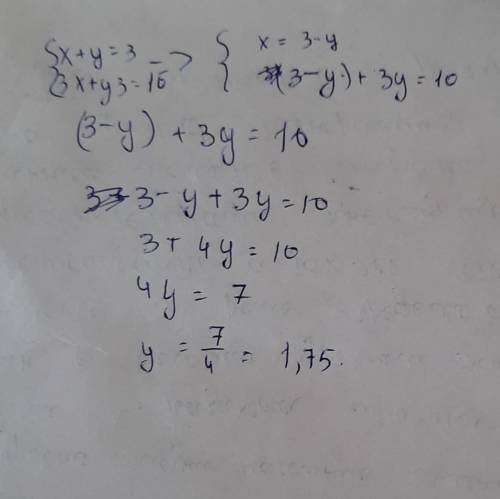 {x+y=3 => { x = 3-y
{3x+y3=10 (3-y)+3y=10
(3-y) + 3y = 10
3-y+3y=10
3+4y=10
4y = 7
y = 7/4 = 1,75.